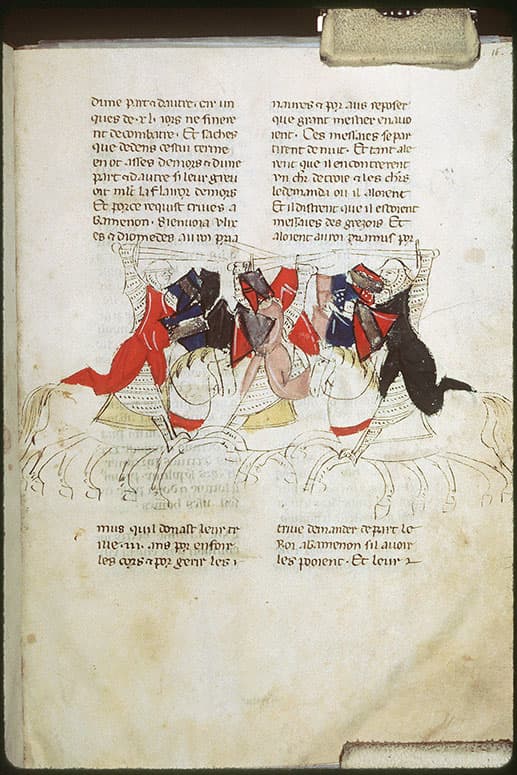 16.
dune part ⁊ dautre · cir un
ques de · xl · iors ne finere
nt de combatre · Et saches
que dedens cestui terme
en ot asses de mors ⁊ dune
part ⁊ dautre si leur greu
ent mlt la flairor de mors
Et por ce requist triues a
gamenon · Si enuoia Ulix
es ⁊ diomedes au roi pria
mus quil donast leur tr
iue · iii · ans por enfoir
les cors ⁊ por gerir les
naures ⁊ por aus reposer
que grant mestier en auo
ient · Ces messaies se par
tirent de nuit · Et tant ale
rent que il encontrerent
un chr de troie ⁊ les chrs
le demanda ou il aloient
Et il distrent que il estoient
messaies des grezois · Et
aloient au roi priamus por
triue demander de part le
Roi agamenon sil auoir
les pooient · Et leur